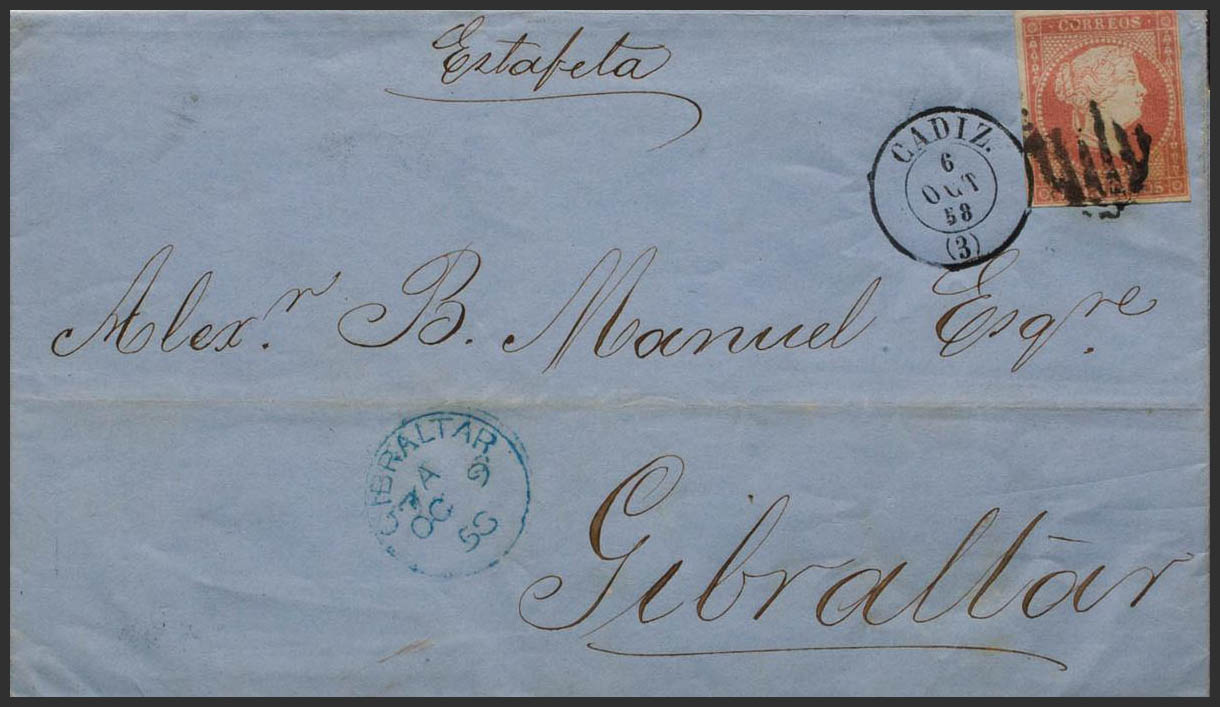 Estafeta
CORREOS
CADIZ.
6
OCT
58
(3)
Alex.r B. Manuel Esqre.
GIBRALTAR
A
OC 9
Gibraltàr